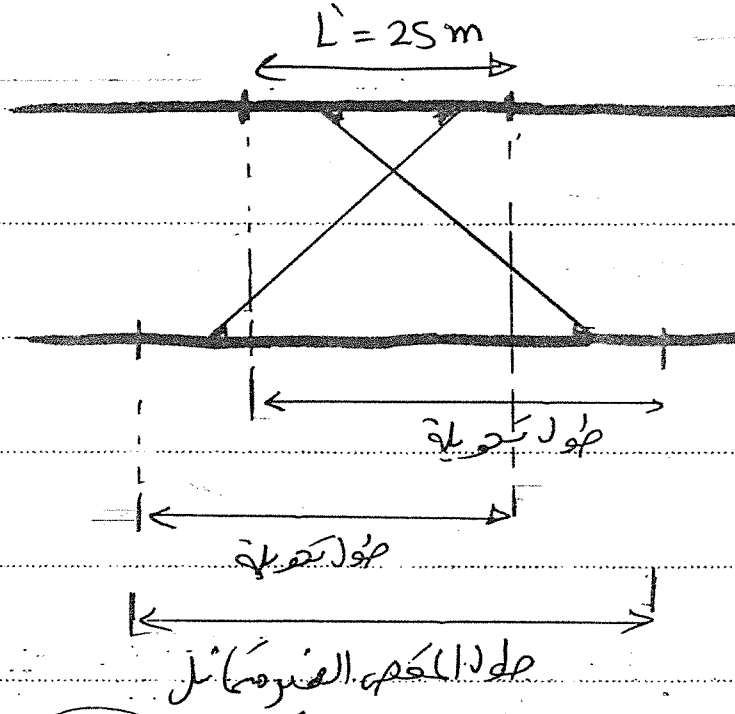 L` = 25 m
طول تحويلة
طول تحويلة
طول المقص الغير متماثل